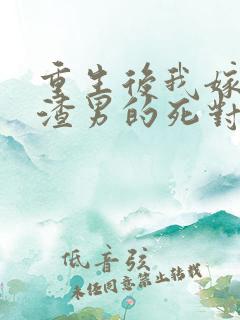 重生後我嫁
渣男的死對
低音弦
未经同意禁止转载